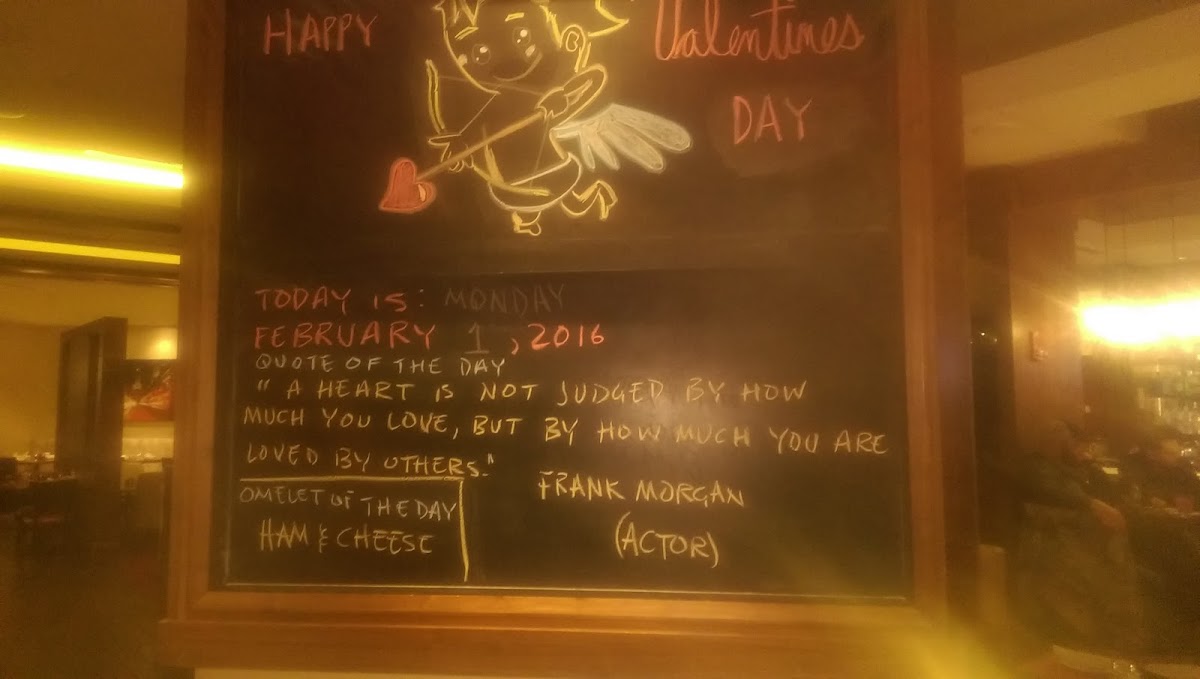 HAPPY Valentines
DAY
TODAY IS: MONDAY
FEBRUARY 1, 2016
QUOTE OF THE DAY
" A HEART IS NOT JUDGED BY HOW
MUCH YOU LOVE, BUT BY HOW MUCH YOU ARE
LOVED BY OTHERS."
FRANK MORGAN
(ACTOR)
OMELET OF THE DAY
HAM & CHEESE